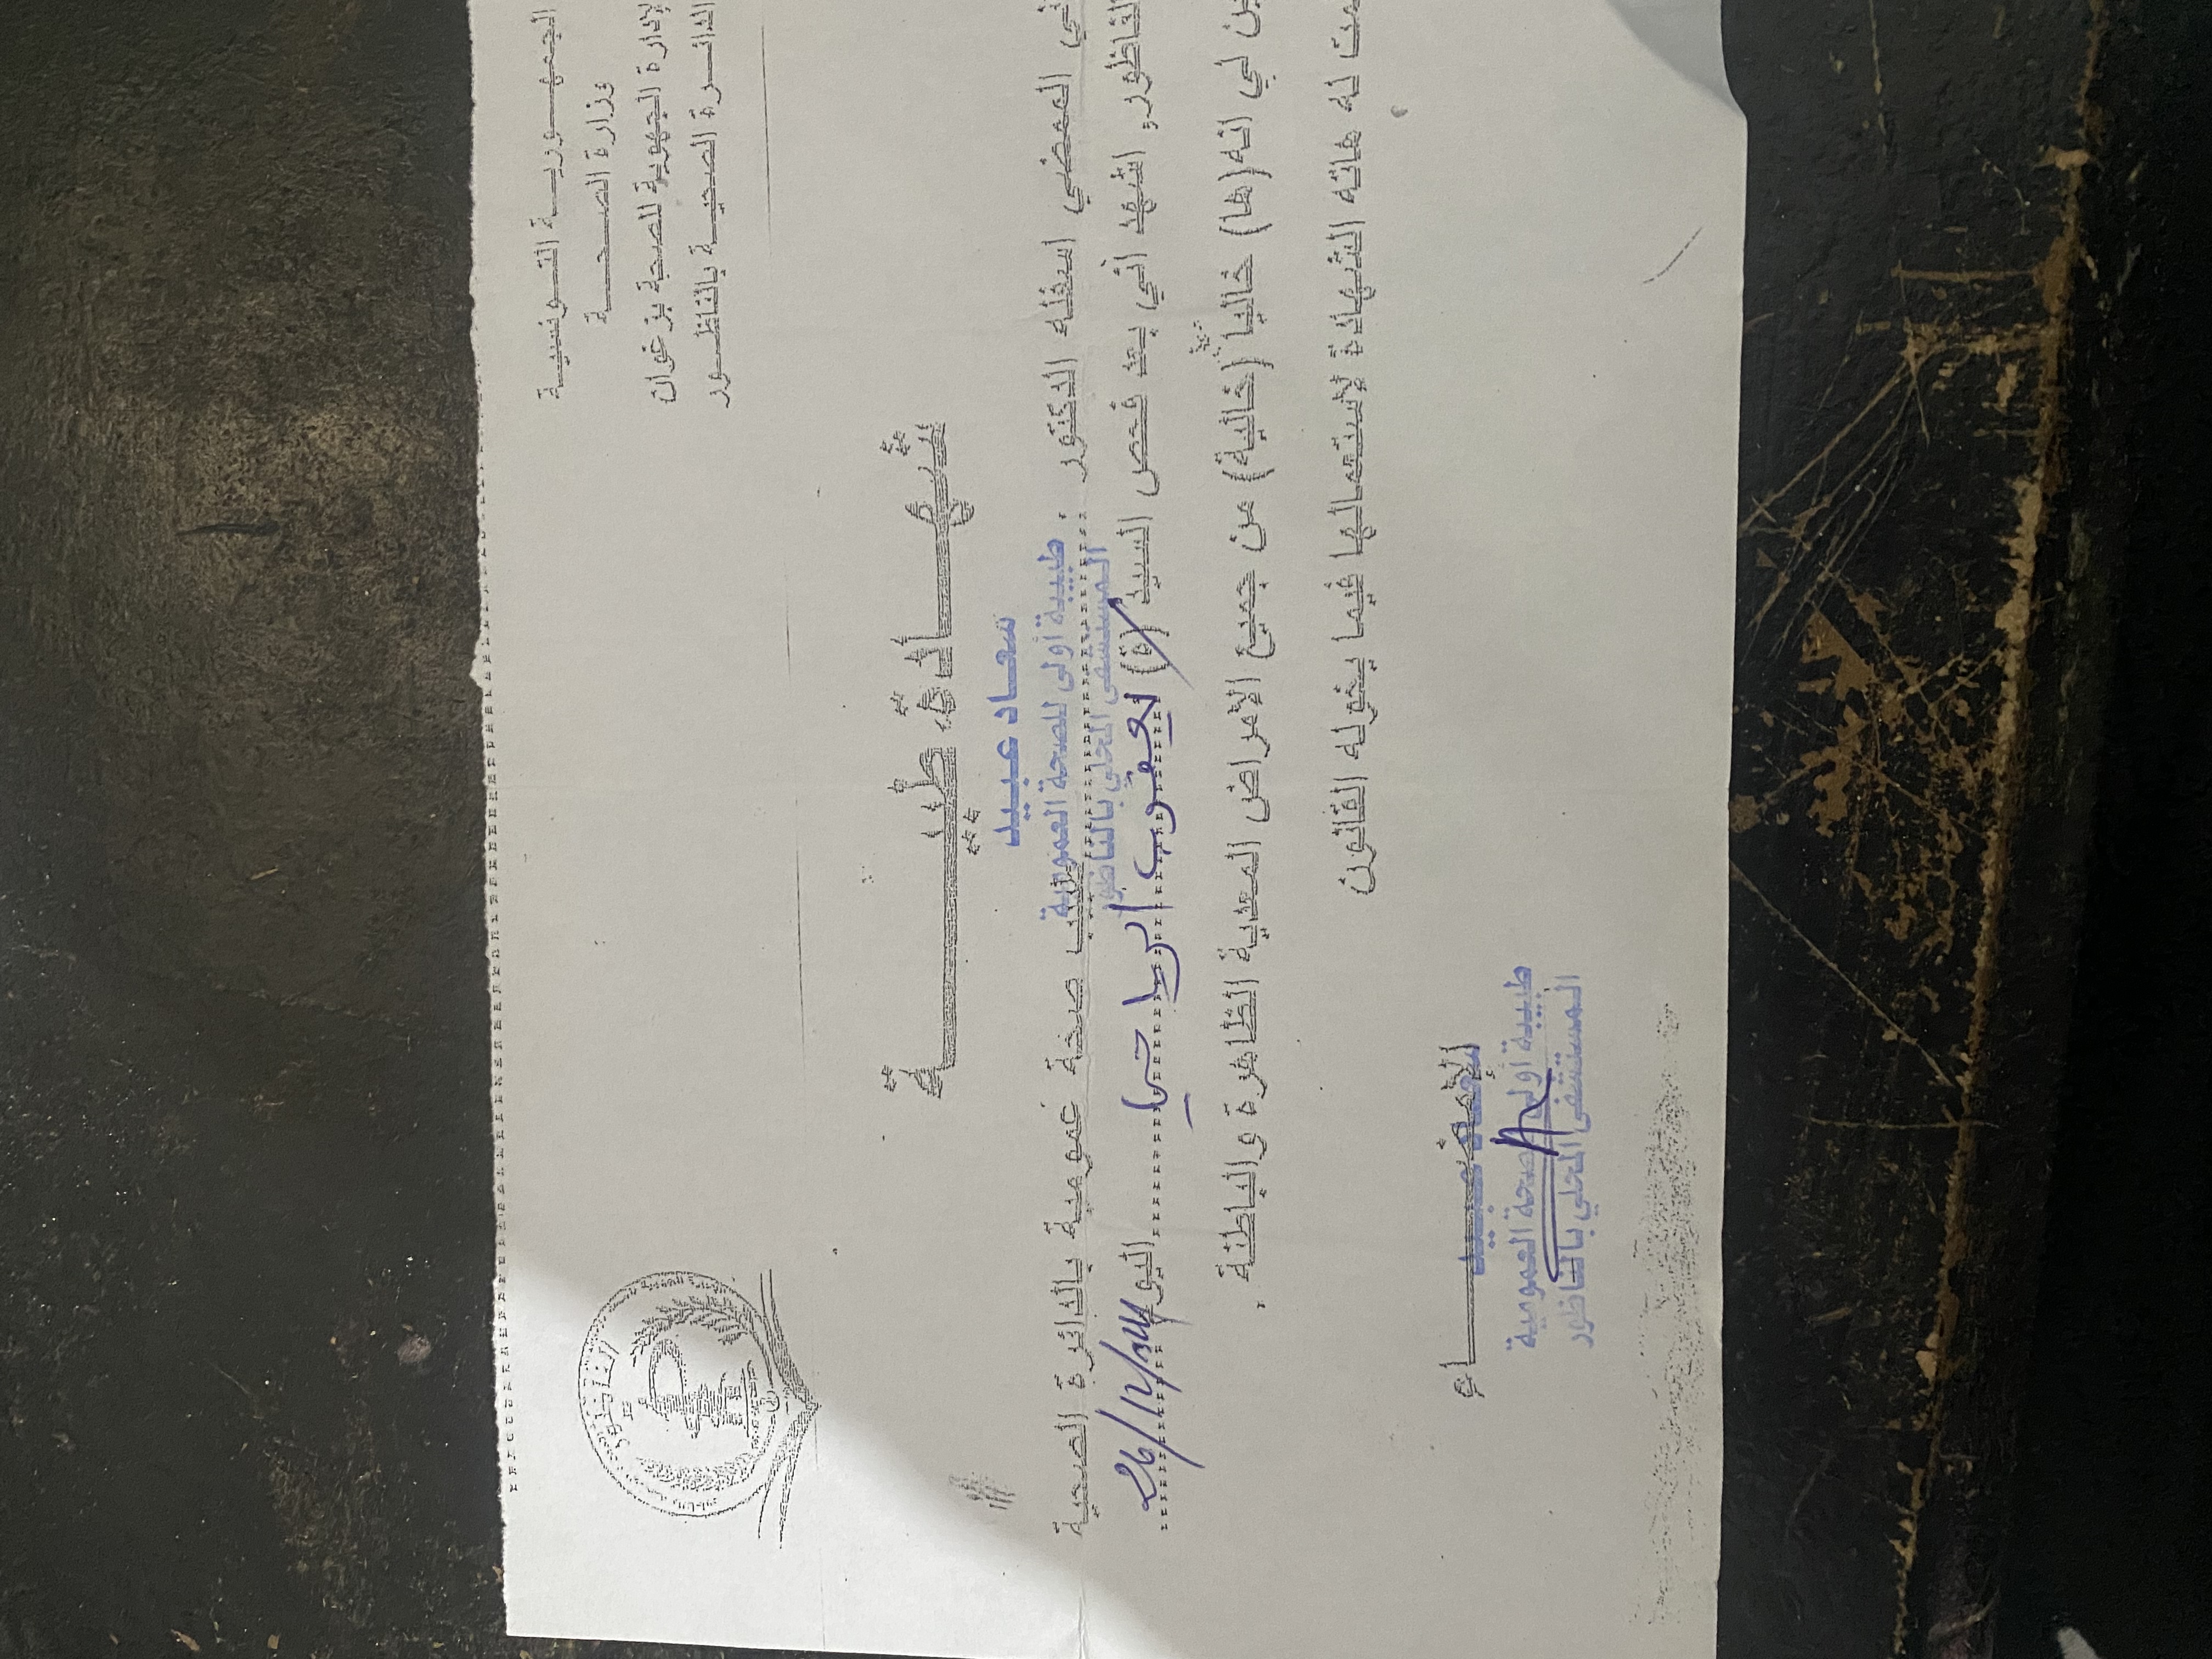 الجمهوريـــة التـونسيـة
وزارة الصحـــة
الإدارة الجهوية للصحة بزغوان
الدائـرة الصحيـة بالناظـور
شهـــادة طبيـــة
سعاد عبيد
طبيبة أولى للصحة العمومية
المستشفى المحلي بالناظور
الممضي اسفله الدكتور : طبيب صحة عمومية بالدائرة الصحية
اشهد أني بعد فحص السيد (ة) يعقوب الرياحي اليوم 26/12/
لي انه (ها) خاليا (خالية) من جميع الأمراض المعدية الظاهرة والباطنة .
له هاته الشهادة لاستعمالها فيما يخوله القانون
الإمضـــاء
سعاد عبيد
طبيبة أولى للصحة العمومية
المستشفى المحلي بالناظور